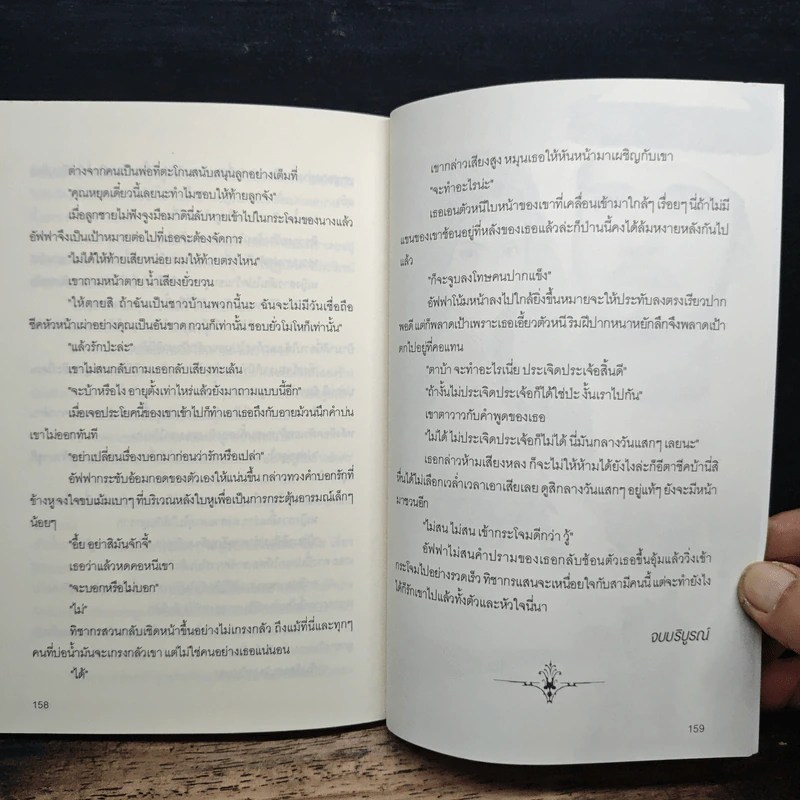 ต่างจากคนเป็นพ่อที่ตะโกนสนับสนุนลูกอย่างเต็มที่
"คุณหยุดเดี๋ยวนี้เลยนะทำไมชอบให้ท้ายลูกจัง"
เมื่อลูกชายไม่ฟังจูงมือมาดินี่ลับหายเข้าไปในกระโจมของนางแล้ว
อัฟฟาจึงเป็นเป้าหมายต่อไปที่เธอจะต้องจัดการ
"ไม่ได้ให้ท้ายเสียหน่อย ผมให้ท้ายตรงไหน"
เขาถามหน้าตาย น้ำเสียงยั่วยวน
"ให้ตายสิ ถ้าฉันเป็นชาวบ้านพวกนี้นะ ฉันจะไม่มีวันเชื่อถือ
ชีคหัวหน้าเผ่าอย่างคุณเป็นอันขาด กวนก็เท่านั้น ชอบยั่วโมโหก็เท่านั้น"
"แล้วรักป่ะล่ะ"
เขาไม่สนกลับถามเธอกลับเสียงทะเล้น
"จะบ้าหรือไง อายุตั้งเท่าไหร่แล้วยังมาถามแบบนี้อีก"
เมื่อเจอประโยคนี้ของเขาเข้าไปก็ทำเอาเธอถึงกับอายม้วนนึกคำบ่น
เขาไม่ออกทันที
"อย่าเปลี่ยนเรื่องบอกมาก่อนว่ารักหรือเปล่า"
อัฟฟากระชับอ้อมกอดของตัวเองให้แน่นขึ้น กล่าวทวงคำบอกรักที่
ข้างหูจงใจขบเม้มเบาๆ ที่บริเวณหลังใบหูเพื่อเป็นการกระตุ้นอารมณ์เล็กๆ
น้อยๆ
"อื้ย อย่าสิมันจักจี้"
เธอว่าแล้วหดคอหนีเขา
"จะบอกหรือไม่บอก"
"ไม่"
ทิชากรสวนกลับเชิดหน้าขึ้นอย่างไม่เกรงกลัว ถึงแม้ที่นี่และทุกๆ
คนที่บ่อน้ำมันจะเกรงกลัวเขา แต่ไม่ใช่คนอย่างเธอแน่นอน
"ได้"
158
เขากล่าวเสียงสูง หมุนเธอให้หันหน้ามาเผชิญกับเขา
"จะทำอะไรน่ะ"
เธอเอนตัวหนีใบหน้าของเขาที่เคลื่อนเข้ามาใกล้ๆ เรื่อยๆ นี่ถ้าไม่มี
แขนของเขาซ้อนอยู่ที่หลังของเธอแล้วล่ะก็ป่านนี้คงได้ล้มหงายหลังกันไป
แล้ว
"ก็จะจูบลงโทษคนปากแข็ง"
อัฟฟาโน้มหน้าลงไปใกล้ยิ่งขึ้นหมายจะให้ประทับลงตรงเรียวปาก
พอดี แต่ก็พลาดเป้าเพราะเธอเอี้ยวตัวหนี ริมฝีปากหนาหยักลึกจึงพลาดเป้า
ตกไปอยู่ที่คอแทน
"ตาบ้า จะทำอะไรเนี่ย ประเจิดประเจ้อสิ้นดี"
"ถ้างั้นไม่ประเจิดประเจ้อก็ได้ใช่ป่ะ งั้นเราไปกัน"
เขาตาวาวกับคำพูดของเธอ
"ไม่ได้ ไม่ประเจิดประเจ้อก็ไม่ได้ นี่มันกลางวันแสกๆ เลยนะ"
เธอกล่าวห้ามเสียงหลง ก็จะไม่ให้ห้ามได้ยังไงล่ะก็อีตาชีคบ้านี่สิ
หื่นได้ไม่เลือกเวล่ำเวลาเอาเสียเลย ดูสิกลางวันแสกๆ อยู่แท้ๆ ยังจะมีหน้า
มาชวนอีก
"ไม่สน ไม่สน เข้ากระโจมดีกว่า วู้"
อัฟฟาไม่สนคำปรามของเธอกลับช้อนตัวเธอขึ้นอุ้มแล้ววิ่งเข้า
กระโจมไปอย่างรวดเร็ว ทิชากรแสนจะเหนื่อยใจกับสามีคนนี้ แต่จะทำยังไง
ได้ก็รักเขาไปแล้วทั้งตัวและหัวใจนี่นา
จบบริบูรณ์
159